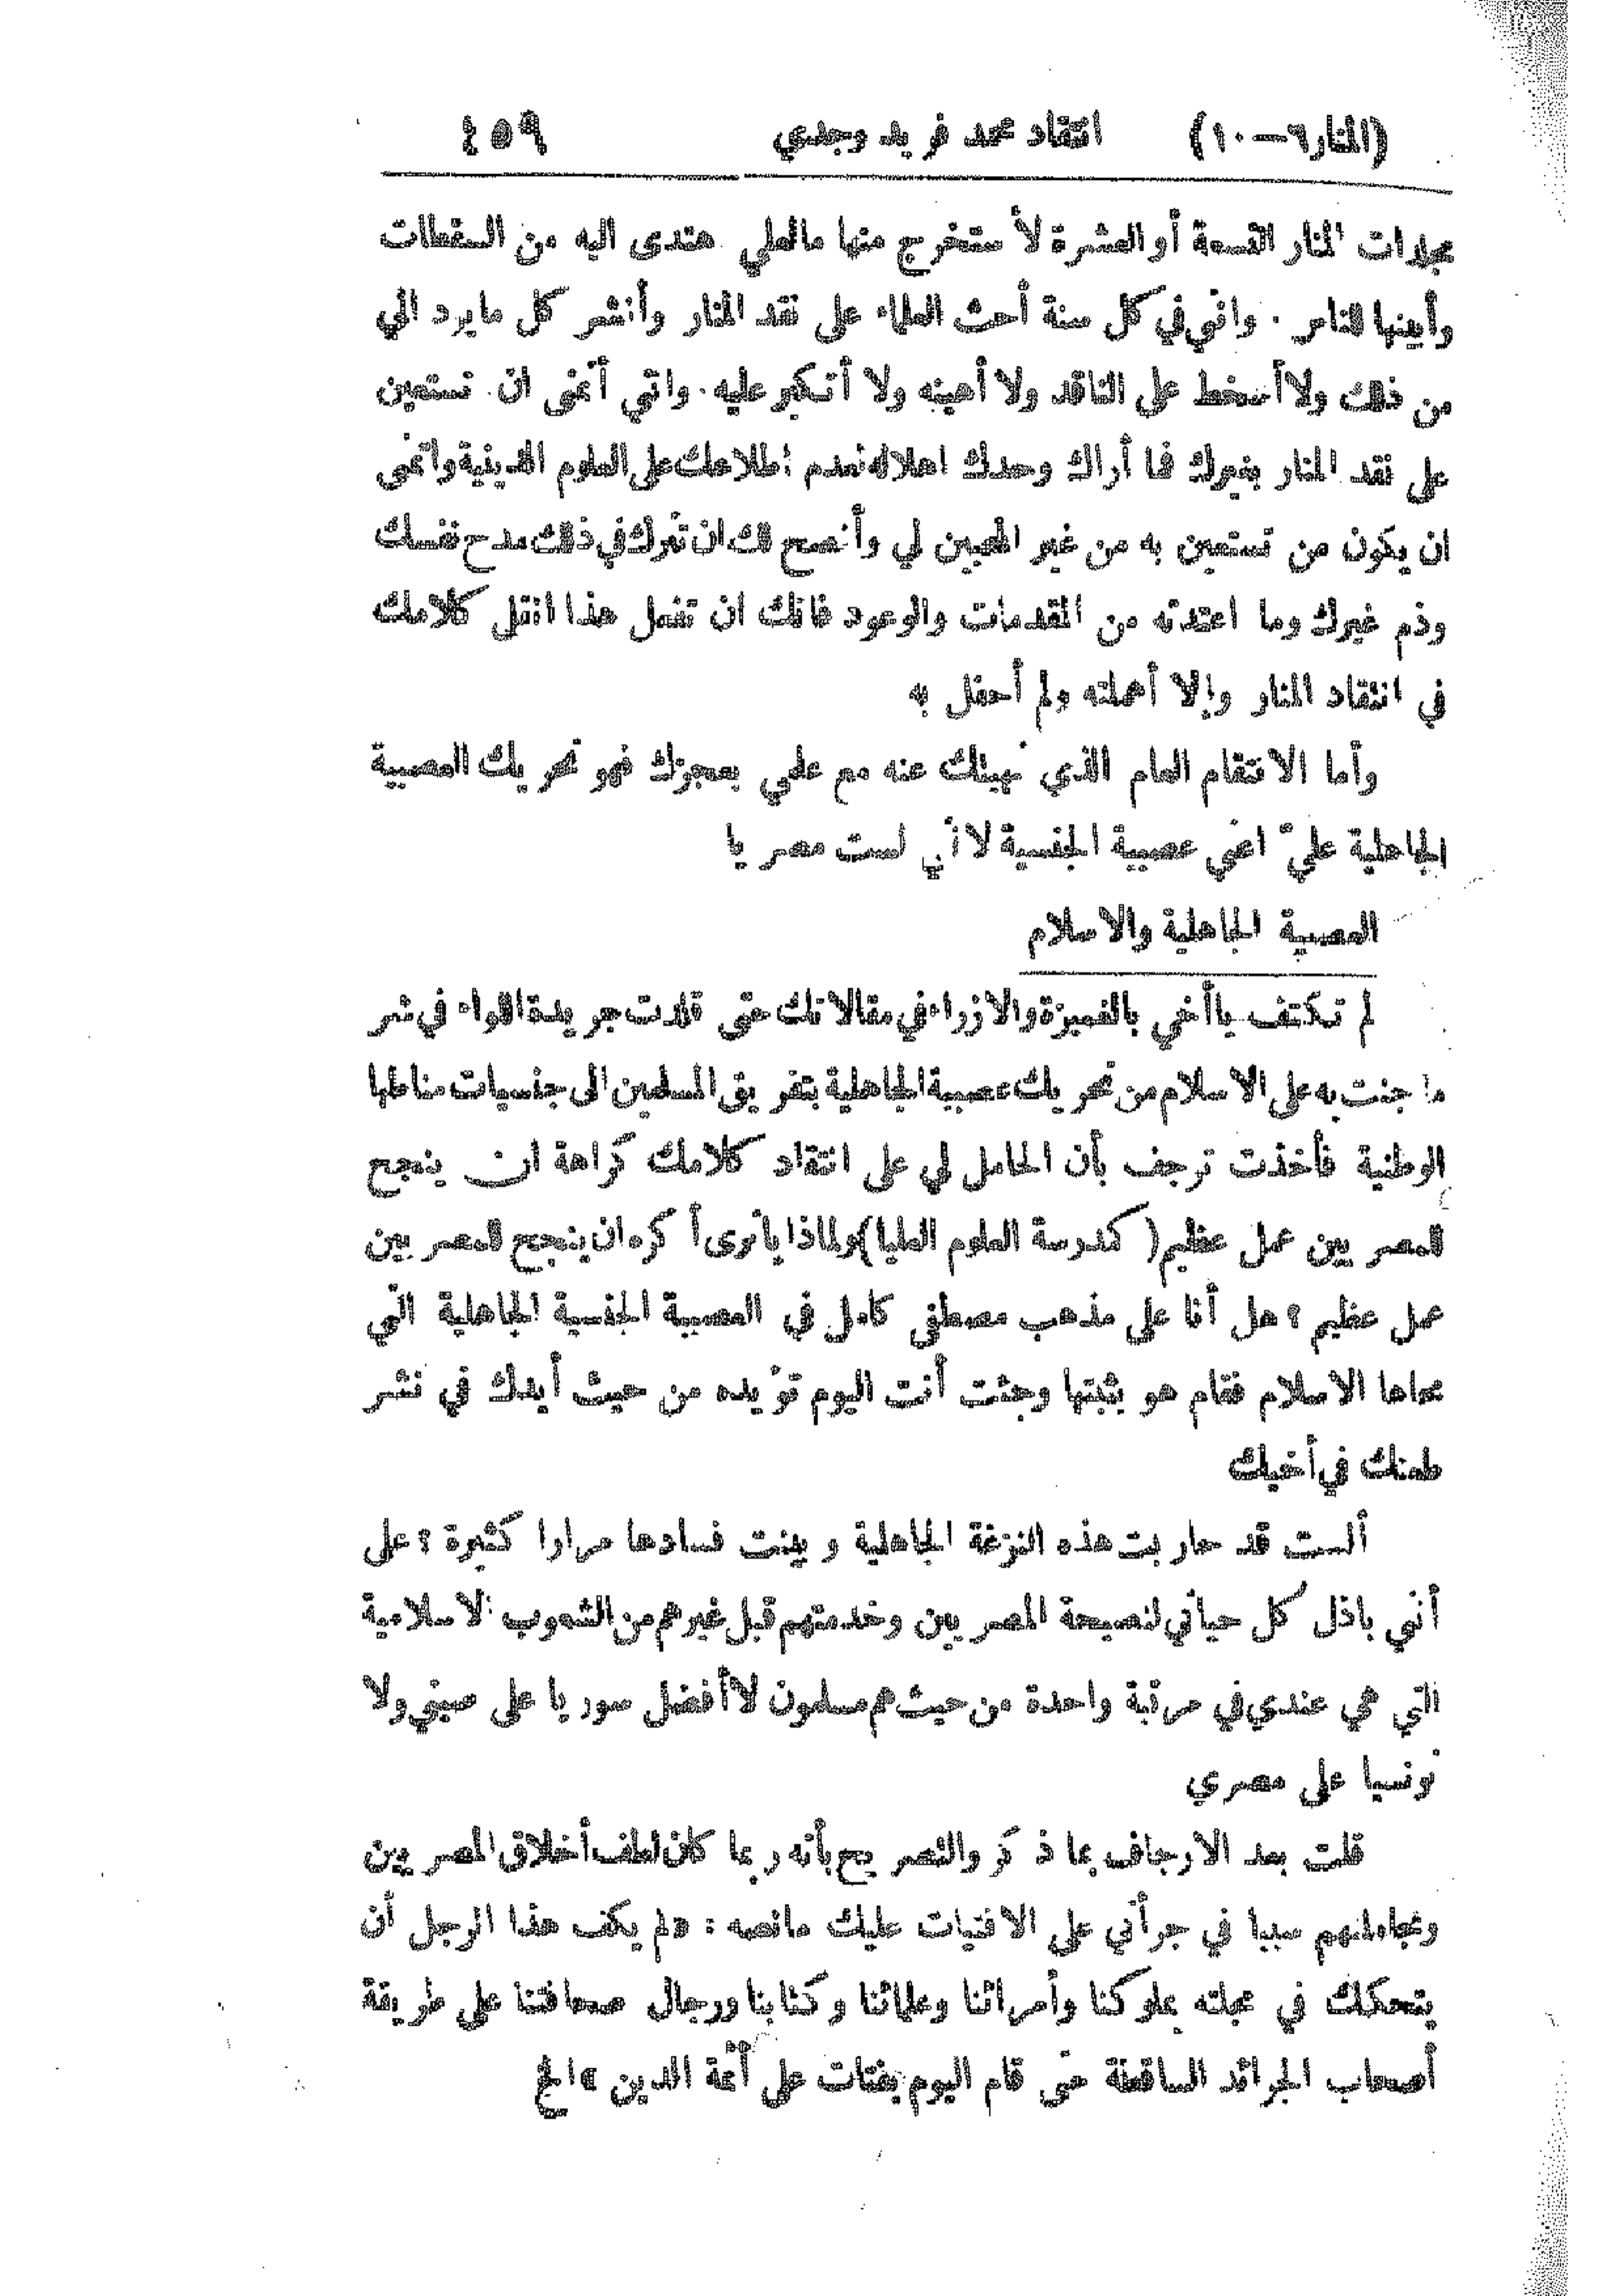 (المنار٦—١٠) انتقاد محمد فريد وجدي ٤٥٩
مجلدات المنار التسعة أو العشرة لأستخرج منها مالعلي هتدى اليه من السقطات
وأبينها للناس . واني في كل سنة أحث العلماء على نقد المنار وأنشر كل مايرد الي
من ذلك ولا أسخط على الناقد ولا أهينه ولا أتكبر عليه . واني أتمنى ان تستعين
على نقد المنار بغيرك فما أراك وحدك اهلا له لعدم اطلاعك على العلوم الدينية واتمنى
ان يكون من تستعين به من غير المحبين لي وأنصح لك ان تترك في ذلك مدح نفسك
وذم غيرك وما اعتدته من المقدمات والوعود فانك ان تفعل هذا انقل كلامك
في انتقاد المنار وإلا أهملته ولم أحفل به
وأما الانتقام العام الذي نهيتك عنه مع علمي بعجزك فهو تحريك العصبية
الجاهلية عليّ اعني عصبية الجنسية لأني لست مصريا
العصبية الجاهلية والاسلام
لم تكتف ياأخي بالغميزة والازراء في مقالاتك حتى قلدت جريدة اللواء في شر
ما جنت به على الاسلام من تحريك عصبية الجاهلية بتفريق المسلمين الى جنسيات مناطها
الوطنية فأخذت ترجف بأن الحامل لي على انتقاد كلامك كراهة ان ينجح
للمصريين عمل عظيم ( كمدرسة العلوم العليا) ولماذا ياترى أكره ان ينجح للمصريين
عمل عظيم ؟ هل أنا على مذهب مصطفى كامل في العصبية الجنسية الجاهلية التي
محاها الاسلام فقام هو يثبتها وجئت أنت اليوم تؤيده من حيث أيدك في نشر
طعنك في أخيك
ألست قد حاربت هذه النزغة الجاهلية وبينت فسادها مرارا كثيرة ؟ على
أني باذل كل حياتي لنصيحة المصريين وخدمتهم قبل غيرهم من الشعوب الاسلامية
التي هي عندي في مرتبة واحدة من حيث هم مسلمون لا أفضل سوريا على صيني ولا
تونسيا على مصري
قلت بعد الارجاف بما ذكر والتصريح بأنه ربما كان لطف أخلاق المصريين
ومجاملتهم سببا في جرأتي على الافتيات عليك مانصه : «لم يكف هذا الرجل أن
يتحكك في مجلته بملوكنا وأمرائنا وعلمائنا وكتابنا ورجال صحافتنا على طريقة
أصحاب الجرائد الساقطة حتى قام اليوم يفتات على أئمة الدين » الخ